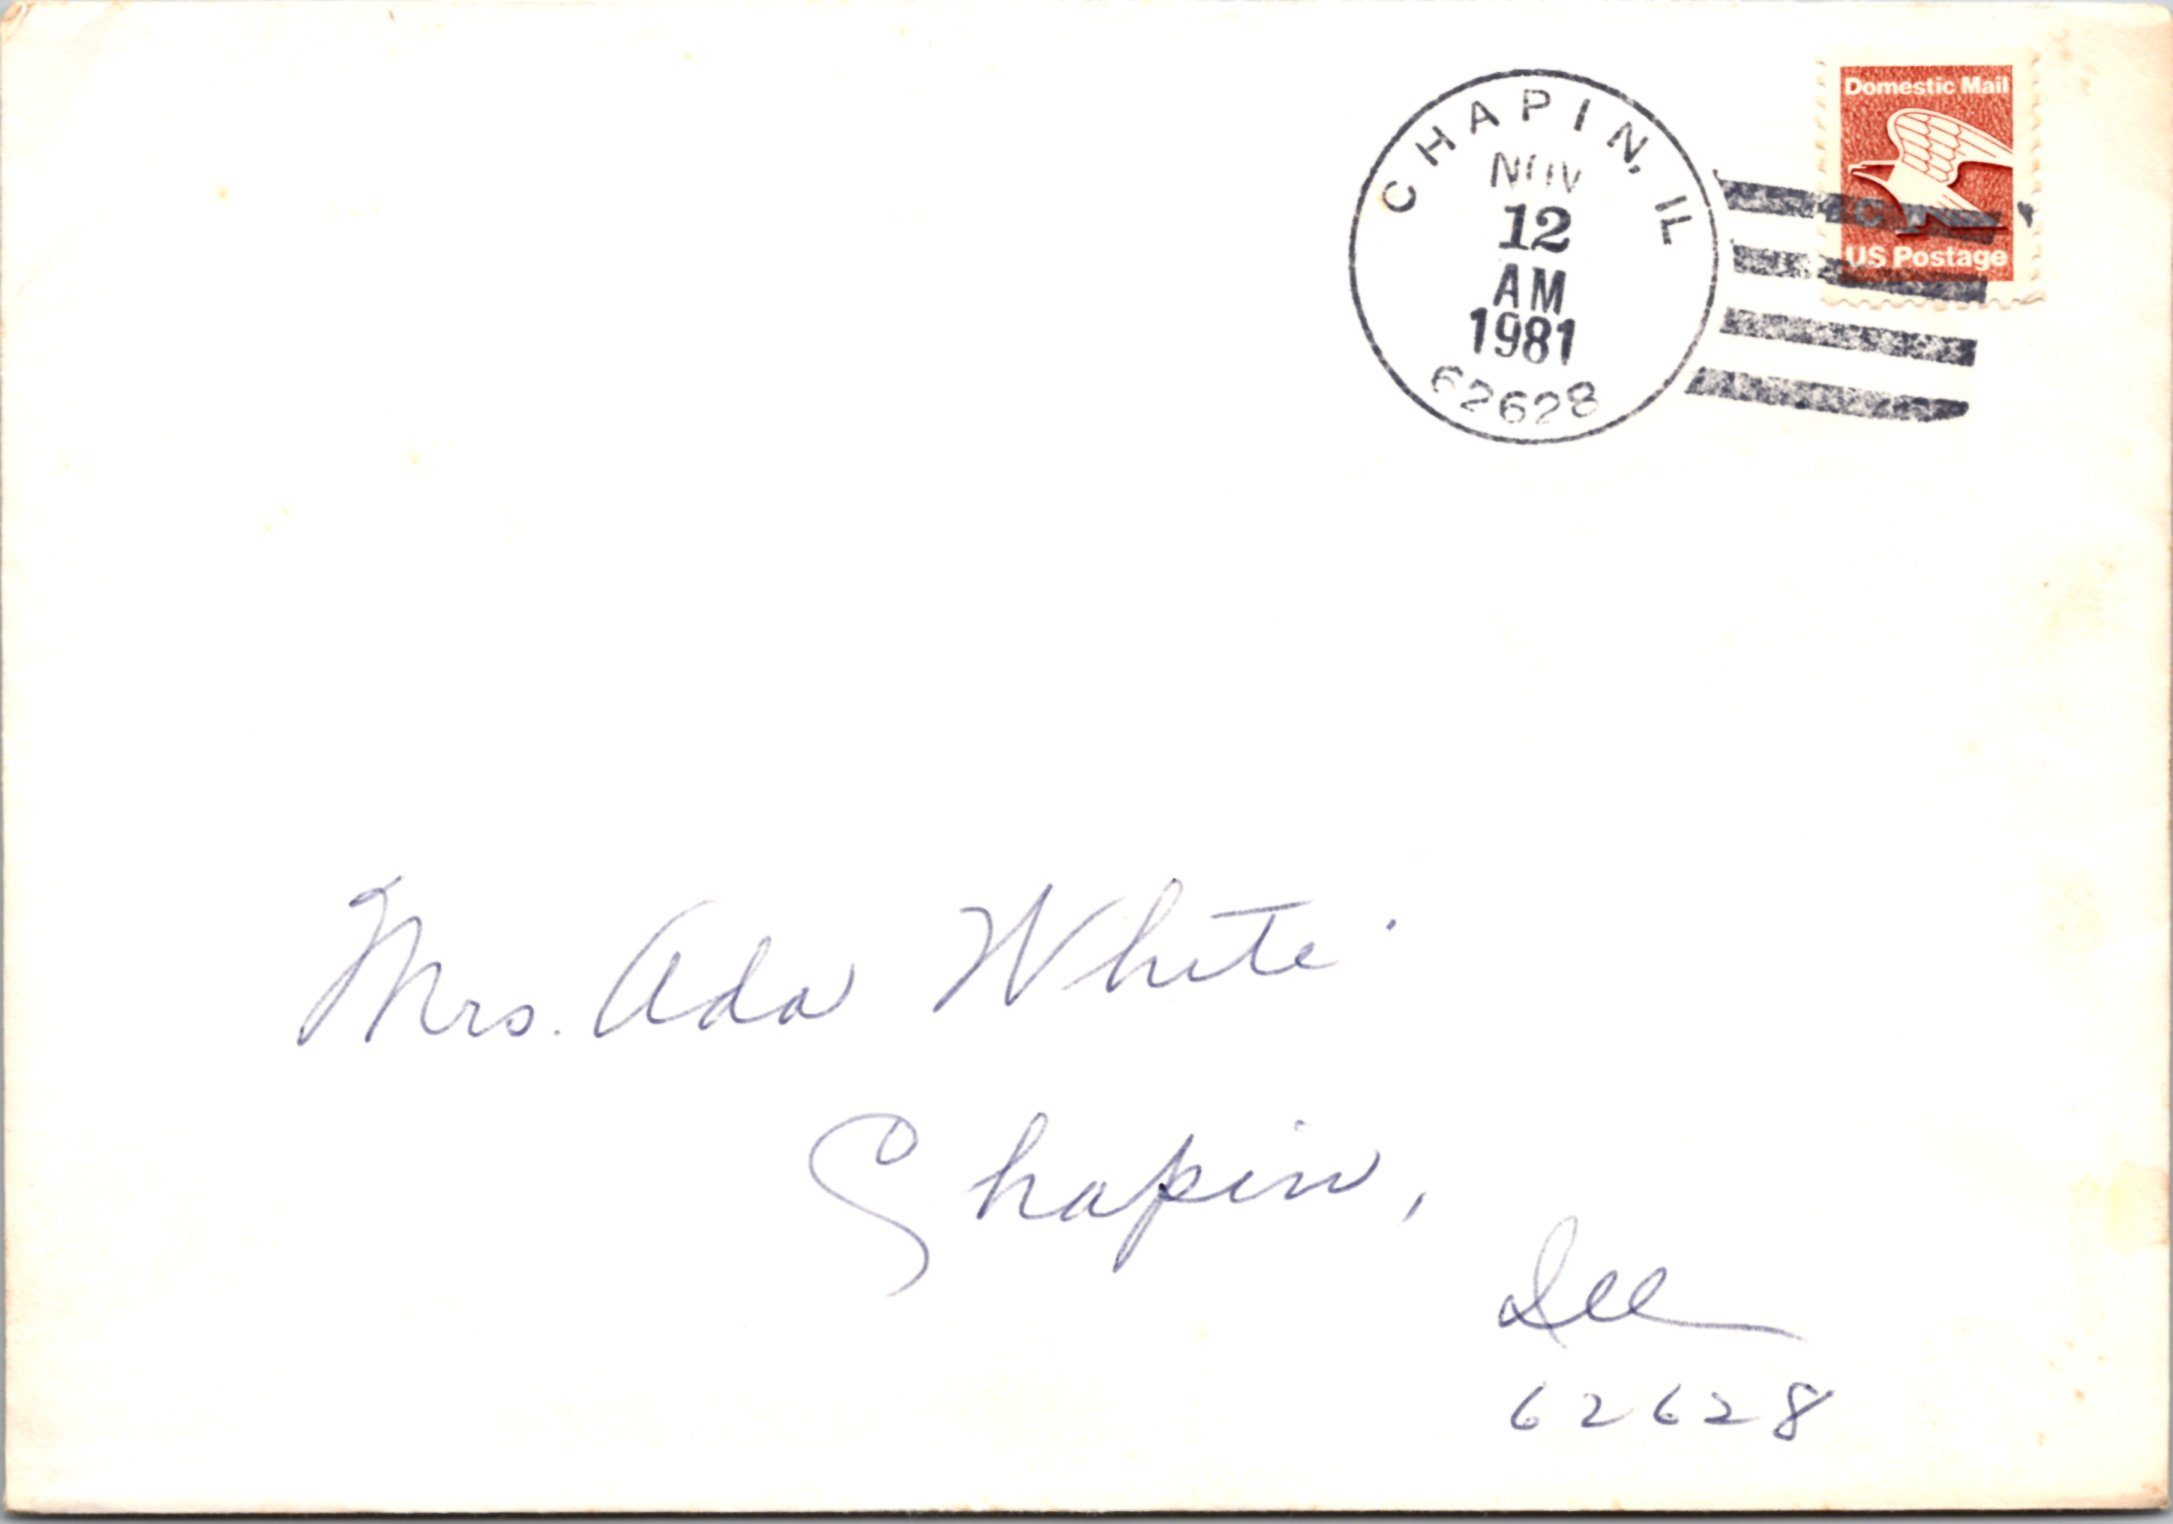 CHAPIN, IL
NOV
12
AM
1981
62628
Domestic Mail
C
US Postage
Mrs. Ada White
Chapin,
Ill
62628